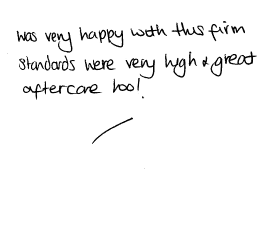 was very happy with this firm
standards were very high & great
aftercare too!